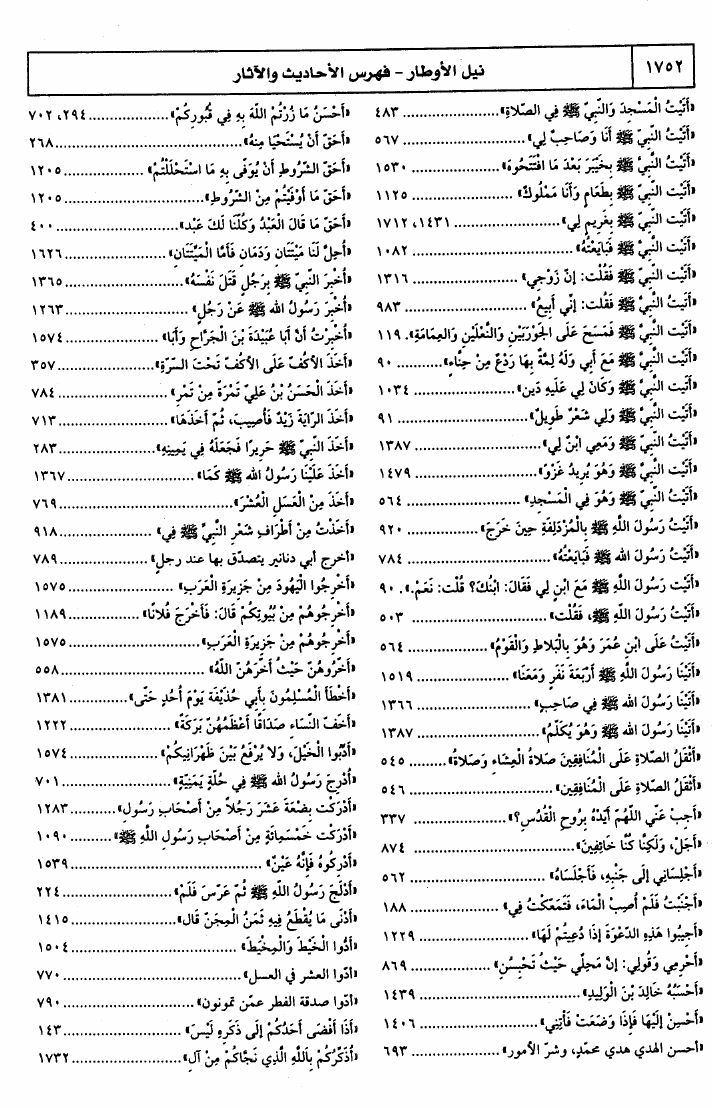 ١٧٥٢
نيل الأوطار - فهرس الأحاديث والآثار
«أَتَيْتُ الْمَسْجِدَ وَالنَّبِيّ ﷺ فِي الصَّلاةِ» ٤٨٣
«أَتَيْتُ النَّبِيّ ﷺ أَنَا وَصَاحِبٌ لِي» ٥٦٧
«أَتَيْتُ النَّبِيّ ﷺ بِخَيْبَر بَعْدَ مَا افْتَتَحُوهَ» ١٥٣٠
«أَتَيْتُ النَّبِيّ ﷺ بِطَعَامٍ وَأَنَا مَمْلُوكٌ» ١١٢٥
«أَتَيْت النَّبِيّ ﷺ بِغَرِيمٍ لِي» ١٤٣١، ١٧١٢
«أَتَيْتُ النَّبِيّ ﷺ فَبَايَعْتُهُ» ١٠٨٢
«أَتَيْت النَّبِيّ ﷺ فَقُلْت: إنّ زَوْجِي» ١٣١٦
«أَتَيْتُ النَّبِيّ ﷺ فَقُلْت: إنّي أَبِيعُ» ٩٨٣
«أَتَيْتُ النَّبِيّ ﷺ فَمَسَحَ عَلَى الْجَوْرَبَيْنِ وَالنَّعْلَيْنِ وَالعِمَامَةِ» ١١٩
«أَتَيْت النَّبِيّ ﷺ مَعَ أَبِي وَلَهُ لِمَّةٌ بِهَا رَدْعٌ مِنْ حِنَّاءٍ» ٩٠
«أَتَيْت النَّبِيّ ﷺ وَكَانَ لِي عَلَيْهِ دَين» ١٠٣٤
«أَتَيْتُ النَّبِيّ ﷺ وَلِي شَعْرٌ طَوِيلٌ» ٩١
«أَتَيْتُ النَّبِيّ ﷺ وَمَعِي ابْنٌ لِي» ١٣٨٧
«أَتَيْت النَّبِيّ ﷺ وَهُوَ يُرِيدُ غَزْوَ» ١٤٧٩
«أَتَيْتُ النَّبِيّ ﷺ وَهُوَ فِي الْمَسْجِدِ» ٥٦٤
«أَتَيْتُ رَسُولَ اللَّهِ ﷺ بِالْمُزْدَلِفَةِ حِينَ خَرَجَ» ٩٢٠
«أَتَيْتُ رَسُولَ الله ﷺ فَبَايَعْتُهُ» ٧٨٤
«أَتَيْت رَسُولَ اللَّهِ ﷺ مَعَ ابْنٍ لِي فَقَالَ: ابْنُكَ؟ قُلْت: نَعَمْ» ٩٠
«أَتَيْتُ رَسُولَ اللَّهِ ﷺ، فَقُلْت» ٥٠٣
«أَتَيْتُ عَلَى ابْنِ عُمَرَ وَهُوَ بِالْبَلاطِ وَالْقَوْمُ» ٥٦٤
«أَتَيْنَا رَسُولَ اللَّهِ ﷺ أَرْبَعَةَ نَفَرٍ وَمَعَنَا» ١٥١٩
«أَتَيْنَا رَسُولَ الله ﷺ فِي صَاحِبٍ» ١٣٦٦
«أَتَيْنَا رَسُولَ الله ﷺ وَهُوَ يُكَلِّمُ» ١٣٨٧
«أَثْقَلُ الصَّلاةِ عَلَى الْمُنَافِقِينَ صَلاةُ الْعِشَاءِ وَصَلاةُ» ٥٤٥
«أَثْقَلُ الصَّلاةِ عَلَى الْمُنَافِقِين» ٥٤٦
«أَجِبْ عَنِّي اللَّهُمّ أَيِّدْهُ بِرُوحِ الْقُدُسِ؟» ٣٣٧
«أَجَلْ، وَلَكِنَّا كُنَّا خَائِفِينَ» ٨٧٤
«أَجْلِسَانِي إلَى جَنْبِهِ، فَأَجْلَسَاهُ» ٥٦٢
«أَجْنَبْتُ فَلَمْ أُصِبْ الْمَاءَ، فَتَمَعَّكْتُ فِي» ١٨٨
«أَجِيبُوا هَذِهِ الدَّعْوَةَ إذَا دُعِيتُمْ لَهَا» ١٢٢٩
«أَحْرِمِي وَقُولِي: إنّ مَحِلِّي حَيْثُ تَحْبِسُنِ» ٨٦٩
«أَحْسَبُهُ خَالِدَ بْنَ الْوَلِيدِ» ١٤٣٩
«أَحْسِنْ إلَيْهَا فَإذَا وَضَعَتْ فَأْتِنِي» ١٤٠٦
«أحسن الهدي هدي محمّدٍ، وشرّ الأمور» ٦٩٣
«أَحْسَنُ مَا زُرْتُمْ اللَّهَ بِهِ فِي قُبُورِكُمْ» ٢٩٤، ٧٠٢
«أَحَقّ أَنْ يُسْتَحْيَا مِنْهُ» ٢٦٨
«أَحَقّ الشّرُوطِ أَنْ يُوَفّى بِهِ مَا اسْتَحْلَلْتُمْ» ١٢٠٥
«أَحَقّ مَا أَوْفَيْتُمْ مِنْ الشّرُوطِ» ١٢٠٥
«أَحَقّ مَا قَالَ الْعَبْدُ وَكُلّنَا لَكَ عَبْد» ٤٠٠
«أُحِلّ لَنَا مَيْتَتَانِ وَدَمَانِ فَأَمَّا الْمَيْتَتَانِ» ١٦٢٦
«أُخْبِرَ النَّبِيّ ﷺ بِرَجُلٍ قَتَلَ نَفْسَهُ» ١٣٦٥
«أُخْبِرَ رَسُولُ الله ﷺ عَنْ رَجُلٍ» ١٢٦٣
«أُخْبِرْتُ أَنّ أَبَا عُبَيْدَةَ بْنَ الْجَرَّاحِ وَأَبَا» ١٥٧٤
«أَخَذَ الأَكُفّ عَلَى الأَكُفّ تَحْتَ السّرّةِ» ٣٥٧
«أَخَذَ الْحَسَنُ بْنُ عَلِيّ تَمْرَةً مِنْ تَمْرِ» ٧٨٤
«أَخَذَ الرّايَةَ زَيْدٌ فَأُصِيبَ، ثُمّ أَخَذَهَا» ٧١٣
«أَخَذَ النَّبِيّ ﷺ حَرِيرًا فَجَعَلَهُ فِي يَمِينِهِ» ٢٨٣
«أَخَذَ عَلَيْنَا رَسُولُ الله ﷺ كَمَا» ١٣٦٧
«أَخَذَ مِنْ الْعَسَلِ الْعُشْرَ» ٧٦٩
«أَخَذْتُ مِنْ أَطْرَافِ شَعْرِ النَّبِيّ ﷺ فِي» ٩١٨
«أخرج أبي دنانير يتصدّق بها عند رجلٍ» ٧٨٩
«أَخْرِجُوا الْيَهُودَ مِنْ جَزِيرَةِ الْعَرَبِ» ١٥٧٥
«أَخْرِجُوهُمْ مِنْ بُيُوتِكُمْ قَالَ: فَأَخْرَجَ فُلانًا» ١١٨٩
«أَخْرِجُوهُمْ مِنْ جَزِيرَةِ الْعَرَبِ» ١٥٧٥
«أَخّرُوهُنّ حَيْثُ أَخّرَهُنّ اللَّهُ» ٥٥٨
«أَخْطَأَ الْمُسْلِمُونَ بِأَبِي حُذَيْفَةَ يَوْمَ أُحُدٍ حَتَّى» ١٣٨١
«أَخَفّ النّسَاءِ صَدَاقًا أَعْظَمُهُنّ بَرَكَةً» ١٢٢٢
«أَدّبُوا الْخَيْلَ، وَلا يُرْفَعُ بَيْنَ ظَهْرَانِيكُمْ» ١٥٧٤
«أُدْرِجَ رَسُولُ الله ﷺ فِي حُلّةٍ يَمَنِيّةٍ» ٧٠١
«أَدْرَكْت بِضْعَةَ عَشَرَ رَجُلاً مِنْ أَصْحَابِ رَسُولِ» ١٢٨٣
«أَدْرَكْت خَمْسَمِائَةٍ مِنْ أَصْحَابِ رَسُولِ اللَّهِ ﷺ» ١٠٩٠
«أَدْرِكُوهُ فَإنَّهُ عَيْنٌ» ١٥٣٩
«أَدْلَجَ رَسُولُ اللَّهِ ﷺ ثُمّ عَرّسَ فَلَمْ» ٢٢٤
«أَدْنَى مَا يُقْطَعُ فِيهِ ثَمَنُ الْمِجَنّ قَال» ١٤١٥
«أَدُّوا الْخَيْطَ وَالْمِخْيَطَ» ١٥٠٤
«ادّوا العشر في العسل» ٧٧٠
«أدّوا صدقة الفطر عمّن تمونون» ٧٩٠
«أَذَا أَفْضَى أَحَدُكُمْ إلَى ذَكَرِهِ لَيْسَ» ١٤٣
«أُذَكّرُكُمْ بِاَللَّهِ الّذِي نَجَّاكُمْ مِنْ آلِ» ١٧٣٢